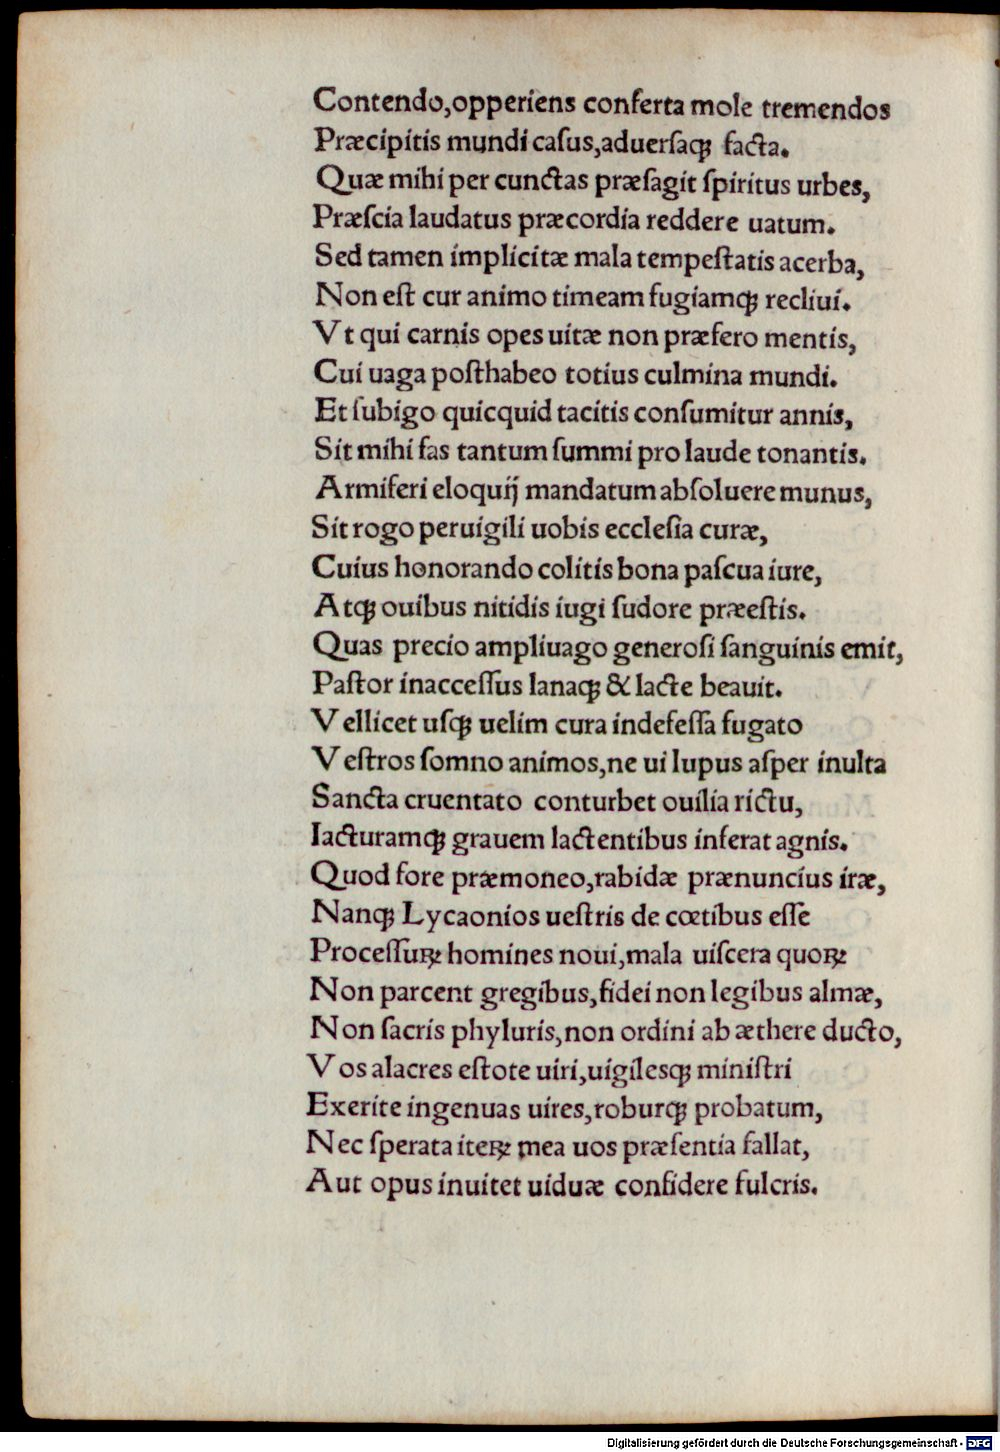 Contendo,opperiens conferta mole tremendos
Præcipitis mundi caſus,aduerſaqꝫ facta.
Quæ mihi per cunctas præſagit ſpiritus urbes,
Præſcia laudatus præcordia reddere uatum.
Sed tamen implicitæ mala tempeſtatis acerba,
Non eſt cur animo timeam fugiamqꝫ recliui.
Vt qui carnis opes uitæ non præfero mentis,
Cui uaga poſthabeo totius culmina mundi.
Et ſubigo quicquid tacitis conſumitur annis,
Sit mihi fas tantum ſummi pro laude tonantis.
Armiferi eloquij mandatum abſoluere munus,
Sit rogo peruigili uobis eccleſia curæ,
Cuius honorando colitis bona paſcua iure,
Atqꝫ ouibus nitidis iugi ſudore præeſtis.
Quas precio ampliuago generoſi ſanguinis emit,
Paſtor inacceſſus lanaqꝫ & lacte beauit.
Vellicet uſqꝫ uelim cura indefeſſa fugato
Veſtros ſomno animos,ne ui lupus aſper inulta
Sancta cruentato conturbet ouilia rictu,
Iacturamqꝫ grauem lactentibus inferat agnis.
Quod fore præmoneo,rabidæ prænuncius iræ,
Nanqꝫ Lycaonios ueſtris de cœtibus eſſe
Proceſſuꝝ homines noui,mala uiſcera quoꝝ
Non parcent gregibus,fidei non legibus almæ,
Non ſacris phyluris,non ordini ab æthere ducto,
Vos alacres eſtote uiri,uigilesqꝫ miniſtri
Exerite ingenuas uires,roburqꝫ probatum,
Nec ſperata iteꝝ mea uos præſentia fallat,
Aut opus inuitet uiduæ confidere fulcris.
Digitalisierung gefördert durch die Deutsche Forschungsgemeinschaft - DFG